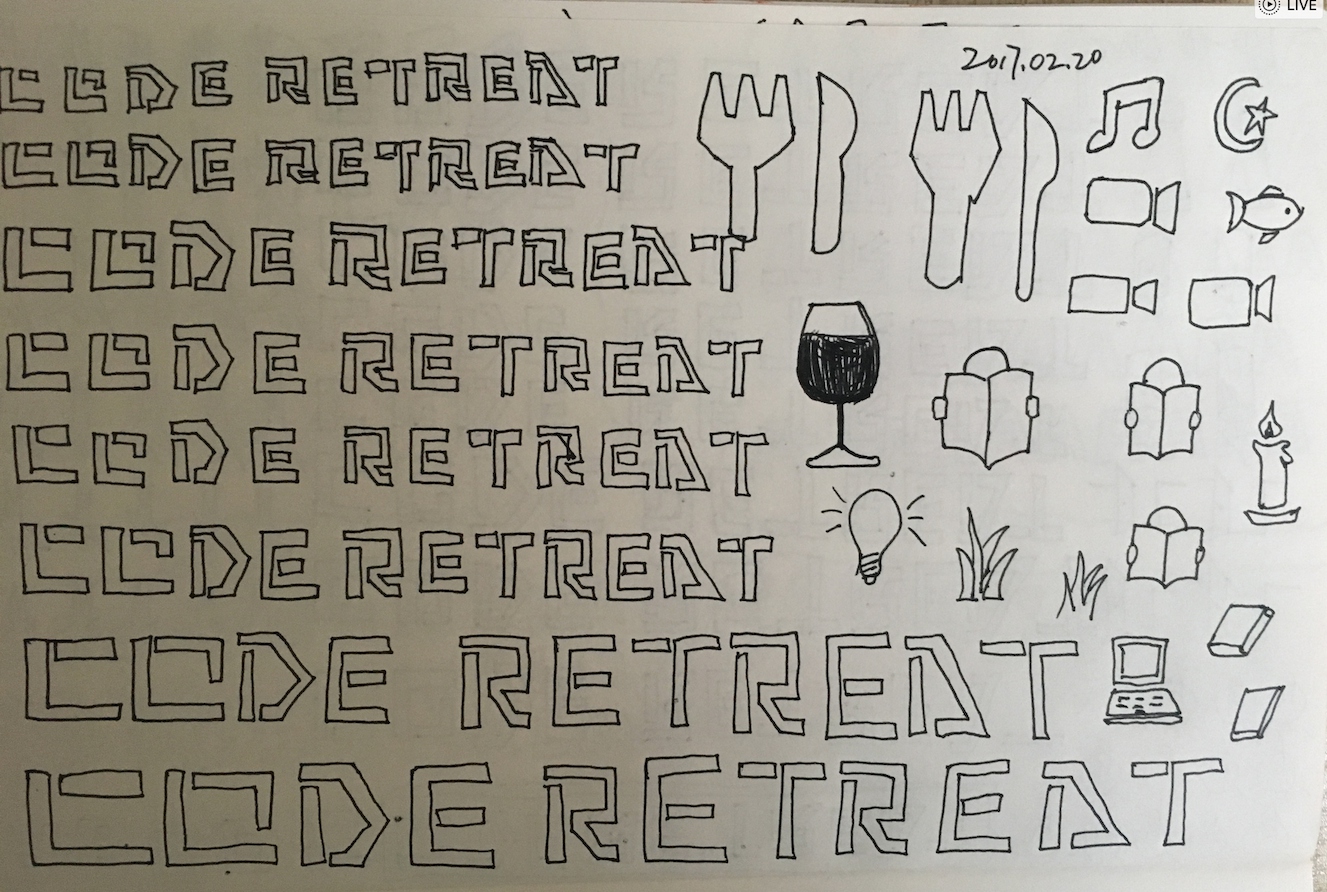 LIVE
2017.02.20
CODE RETREAT
CODE RETREAT
CODE RETREAT
CODE RETREAT
CODE RETREAT
CODE RETREAT
CODE RETREAT
CODE RETREAT